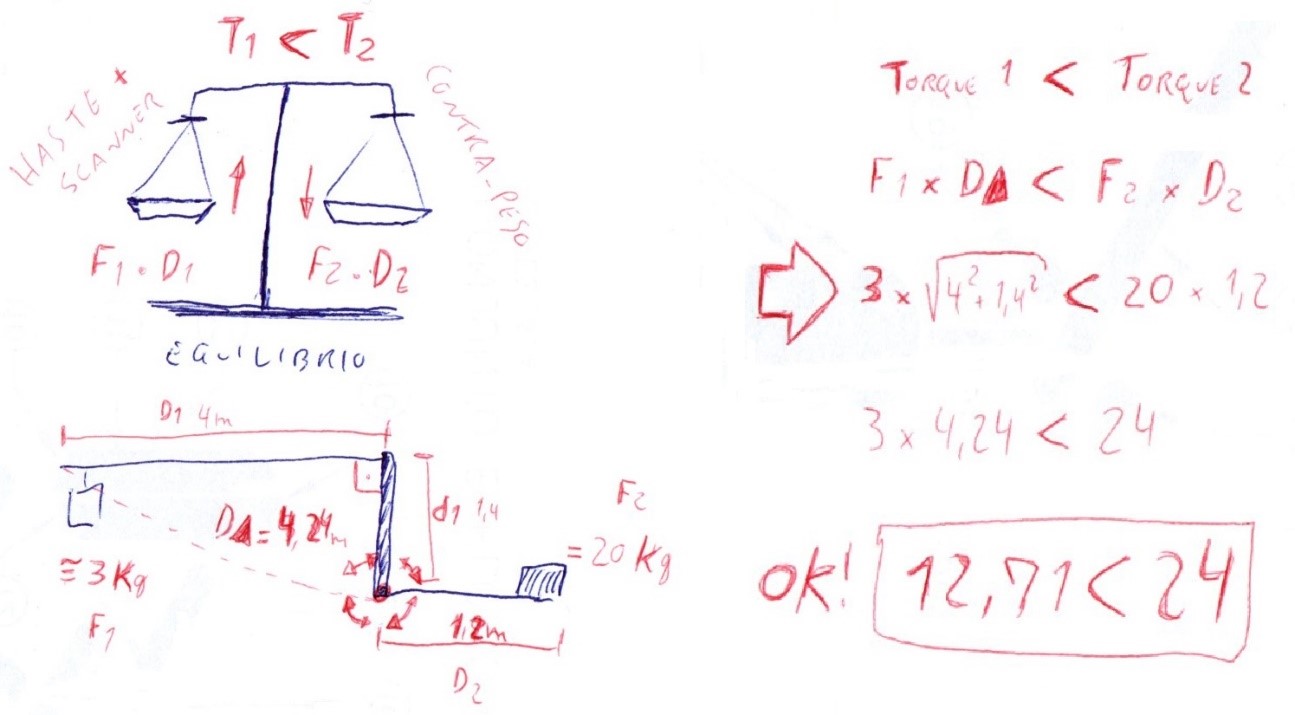 T1 < T2
HASTE *
SCANNER
CONTRA-PESO
F1 . D1
F2 . D2
EQUILIBRIO
D1 4m
d1 1,4
D▲ = 4,24m
≅ 3 Kg
F1
F2
= 20 Kg
1,2m
D2
TORQUE 1 < TORQUE 2
F1 × D▲ < F2 × D2
3 × √4²+1,4² < 20 × 1,2
3 × 4,24 < 24
ok! 12,71 < 24